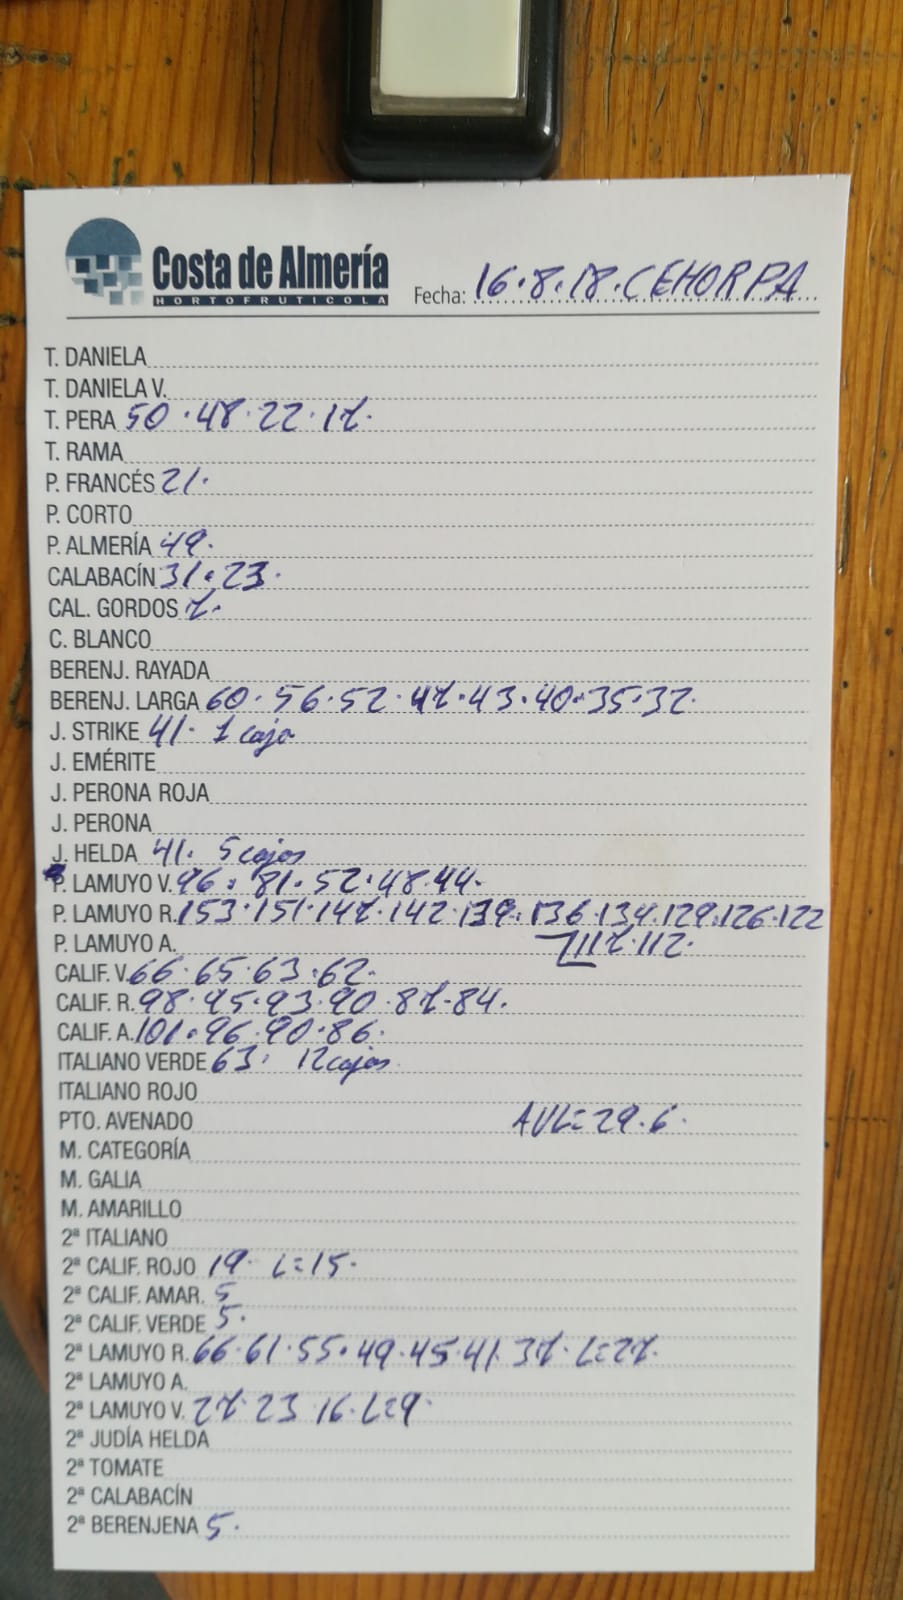 Costa de Almería
HORTOFRUTICOLA
Fecha: 16.8.18. CEHORPA
T. DANIELA
T. DANIELA V.
T. PERA 50.48.22.17.
T. RAMA
P. FRANCÉS 21.
P. CORTO
P. ALMERÍA 49.
CALABACÍN 31.23.
CAL. GORDOS 7.
C. BLANCO
BERENJ. RAYADA
BERENJ. LARGA 60.56.52.47.43.40.35.32.
J. STRIKE 41. 1 caja
J. EMÉRITE
J. PERONA ROJA
J. PERONA
J. HELDA 41. 5 cajas
P. LAMUYO V. 96. 81.52.48.44.
P. LAMUYO R. 153.151.147.142.139.136.134.129.126.122
P. LAMUYO A. 117.112.
CALIF. V. 66.65.63.62.
CALIF. R. 98.95.93.90.87.84.
CALIF. A. 101.96.90.86.
ITALIANO VERDE 63. 12 cajas
ITALIANO ROJO
PTO. AVENADO AVL=29.6.
M. CATEGORÍA
M. GALIA
M. AMARILLO
2ª ITALIANO
2ª CALIF. ROJO 19. L=15.
2ª CALIF. AMAR. 5
2ª CALIF. VERDE 5.
2ª LAMUYO R. 66.61.55.49.45.41.37. L=27.
2ª LAMUYO A.
2ª LAMUYO V. 27.23 16. L=9.
2ª JUDÍA HELDA
2ª TOMATE
2ª CALABACÍN
2ª BERENJENA 5.